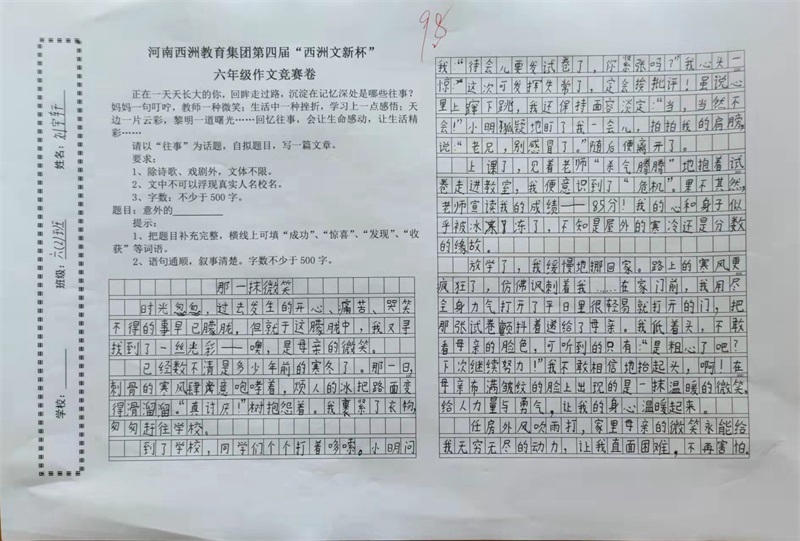 98
河南西洲教育集团第四届“西洲文新杯”
六年级作文竞赛卷
正在一天天长大的你，回眸走过路，沉淀在记忆深处是哪些往事？
妈妈一句叮咛，教师一种微笑；生活中一种挫折，学习上一点感悟；天
边一片云彩，黎明一道曙光……回忆往事，会让生命感动，让生活精
彩……
请以“往事”为话题，自拟题目，写一篇文章。
要求：
1、除诗歌、戏剧外，文体不限。
2、文中不可以浮现真实人名校名。
3、字数：不少于 500 字。
题目：意外的
提示：
1、把题目补充完整，横线上可填“成功”、“惊喜”、“发现”、“收
获”等词语。
2、语句通顺，叙事清楚。字数不少于 500 字。
学校：
班级：六(2)班
姓名：刘宇轩
那一抹微笑
时光匆匆，过去发生的开心、痛苦、哭笑
不得的事早已朦胧，但就于这朦胧中，我又寻
找到了一丝光彩——噢，是母亲的微笑。
已经数不清是多少年前的寒冬了。那一日，
刺骨的寒风肆意咆哮着，烦人的冰把路面变
得滑溜溜。“真讨厌！”树抱怨着。我裹紧了衣物，
匆匆赶往学校。
到了学校，同学们个个打着哆嗦。小明问
我“待会儿要发试卷了，你紧张吗？”我心头一
惊“这次可发挥失常了，定会挨批评！虽说心
里上蹿下跳，我还保持面容淡定“当，当然不
会！”小明狐疑地盯了我一会儿，拍拍我的肩膀，
说“老兄，别感冒了。”随后便离开了。
上课了，见着老师“杀气腾腾”地抱着试
卷走进教室，我便意识到了“危机”。果不其然，
老师宣读我的成绩——85分！我的心和身子似
乎被冰寒冻了，不知是屋外的寒冷还是分数
的缘故。
放学了，我缓慢地挪回家。路上的寒风更
疯狂了，仿佛讽刺着我……在家门前，我用尽
全身力气打开了平日里很轻易就打开的门，把
那张试卷颤抖着递给了母亲。我低着头，不敢
看母亲的脸色，可听到的只有“是粗心了吧？
下次继续努力！”我不敢相信地抬起头，啊！在
母亲布满皱纹的脸上出现的是一抹温暖的微笑，
给人力量与勇气，让我的身心温暖起来。
任房外风吹雨打，家里母亲的微笑永能给
我无穷无尽的动力，让我直面困难，不再害怕。